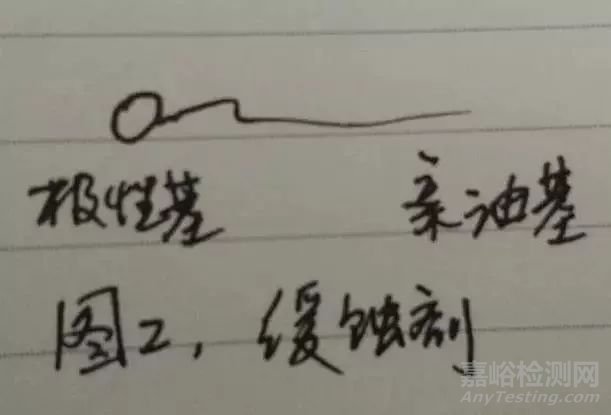 极性基 亲油基
图2, 缓蚀剂
嘉峪检测网
AnyTesting.com